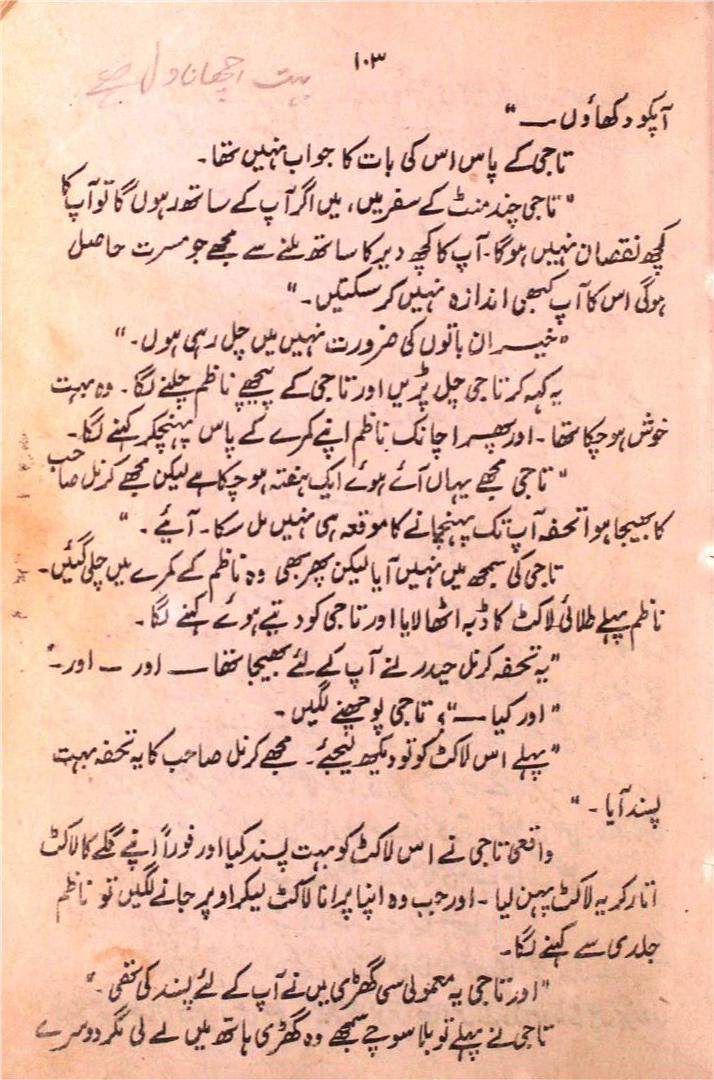 ۱۰۳
بہت اچھا ناول ہے
آپکو دکھاؤں ــــ"
تاجی کے پاس اس کی بات کا جواب نہیں تھا۔
"تاجی چند منٹ کے سفر میں، میں اگر آپ کے ساتھ رہوں گا تو آپ کا
کچھ نقصان نہیں ہوگا۔ آپ کا کچھ دیر کا ساتھ ملنے سے مجھے جو مسرت حاصل
ہوگی اس کا آپ کبھی اندازہ نہیں کر سکتیں۔"
"خیر ان باتوں کی ضرورت نہیں میں چل رہی ہوں۔"
یہ کہہ کر تاجی چل پڑیں اور تاجی کے پیچھے ناظم چلنے لگا۔ وہ بہت
خوش ہو چکا تھا۔ اور پھر اچانک ناظم اپنے کمرے کے پاس پہنچکر کہنے لگا۔
"تاجی مجھے یہاں آئے ہوئے ایک ہفتہ ہو چکا ہے لیکن مجھے کرنل صاحب
کا بھیجا ہوا تحفہ آپ تک پہنچانے کا موقعہ ہی نہیں مل سکا۔ آئیے۔"
تاجی کی سمجھ میں نہیں آیا لیکن پھر بھی وہ ناظم کے کمرے میں چلی گئیں۔
ناظم پہلے طلائی لاکٹ کا ڈبہ اٹھا لایا اور تاجی کو دیتے ہوئے کہنے لگا۔
"یہ تحفہ کرنل حیدر نے آپ کے لئے بھیجا تھا ــــ اور ــ اور۔"
"اور کیا ــــ"؟ تاجی پوچھنے لگیں۔
"پہلے اس لاکٹ کو تو دیکھ لیجئے۔ مجھے کرنل صاحب کا یہ تحفہ بہت
پسند آیا۔"
واقعی تاجی نے اس لاکٹ کو بہت پسند کیا اور فوراً اپنے گلے کا لاکٹ
اتار کر یہ لاکٹ پہن لیا۔ اور جب وہ اپنا پرانا لاکٹ لیکر اوپر جانے لگیں تو ناظم
جلدی سے کہنے لگا۔
"اور تاجی یہ معمولی سی گھڑی میں نے آپ کے لئے پسند کی تھی۔"
تاجی نے پہلے تو بلا سوچے سمجھے وہ گھڑی ہاتھ میں لے لی مگر دوسرے